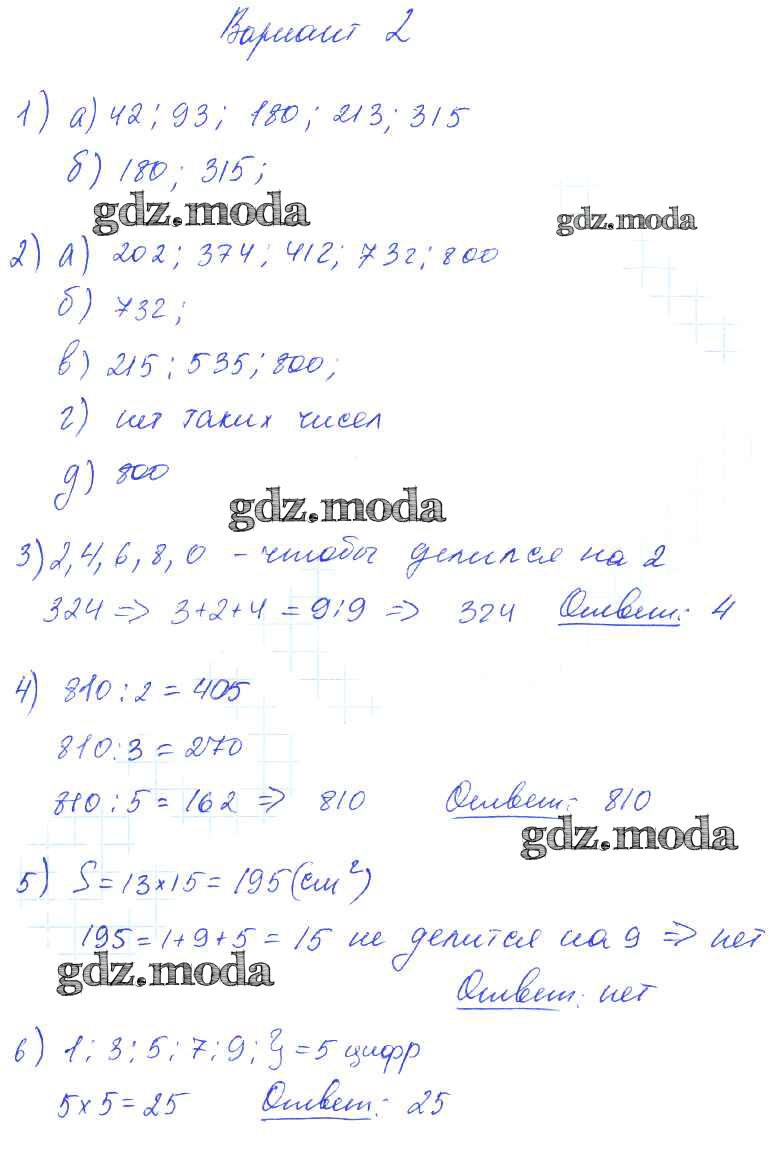 Вариант 2
1) а) 42; 93; 180; 213; 315
б) 180; 315;
gdz.moda
gdz.moda
2) а) 202; 374; 412; 732; 800
б) 732;
в) 215; 535; 800;
г) нет таких чисел
д) 800
gdz.moda
3) 2, 4, 6, 8, 0 - чтобы делился на 2
324 => 3+2+4 = 9:9 => 324 Ответ: 4
4) 810 : 2 = 405
810:3 = 270
810 : 5 = 162 => 810 Ответ: 810
gdz.moda
5) S = 13 × 15 = 195 (см²)
195 = 1+9+5 = 15 не делится на 9 => нет
gdz.moda
Ответ: нет
6) 1; 3; 5; 7; 9; } = 5 цифр
5 × 5 = 25 Ответ: 25